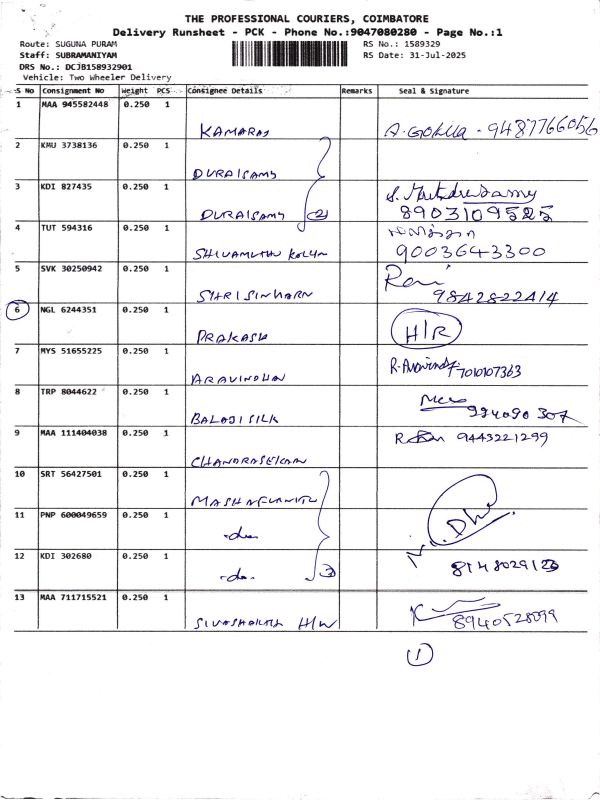 THE PROFESSIONAL COURIERS, COIMBATORE
Delivery Runsheet - PCK - Phone No.:9047080280 - Page No.:1
Route: SUGUNA PURAM RS No.: 1589329
Staff: SUBRAMANIYAM RS Date: 31-Jul-2025
DRS No.: DCJB158932901
Vehicle: Two Wheeler Delivery
S No Consignment No Weight PCS Consignee Details Remarks Seal & Signature
1 MAA 945582448 0.250 1
KAMARAJ A. GOKILA - 9487766056
2 KMU 3738136 0.250 1
DURAISAMY
3 KDI 827435 0.250 1
DURAISAMY (2) 8903109525
4 TUT 594316 0.250 1
9003643300
5 SVK 30250942 0.250 1
Ravi
9842822414
6 NGL 6244351 0.250 1
PRAKASH H/R
7 MYS 51655225 0.250 1
ARAVINDHAN 7010107363
8 TRP 8044622 0.250 1
BALAJI SILK
9 MAA 111404038 0.250 1
CHANDRASEKARAN 9443221299
10 SRT 56427501 0.250 1
11 PNP 600049659 0.250 1
-do-
12 KDI 302680 0.250 1
-do- (3)
13 MAA 711715521 0.250 1
SIVASHAKTHI H/W 8940528099
(1)